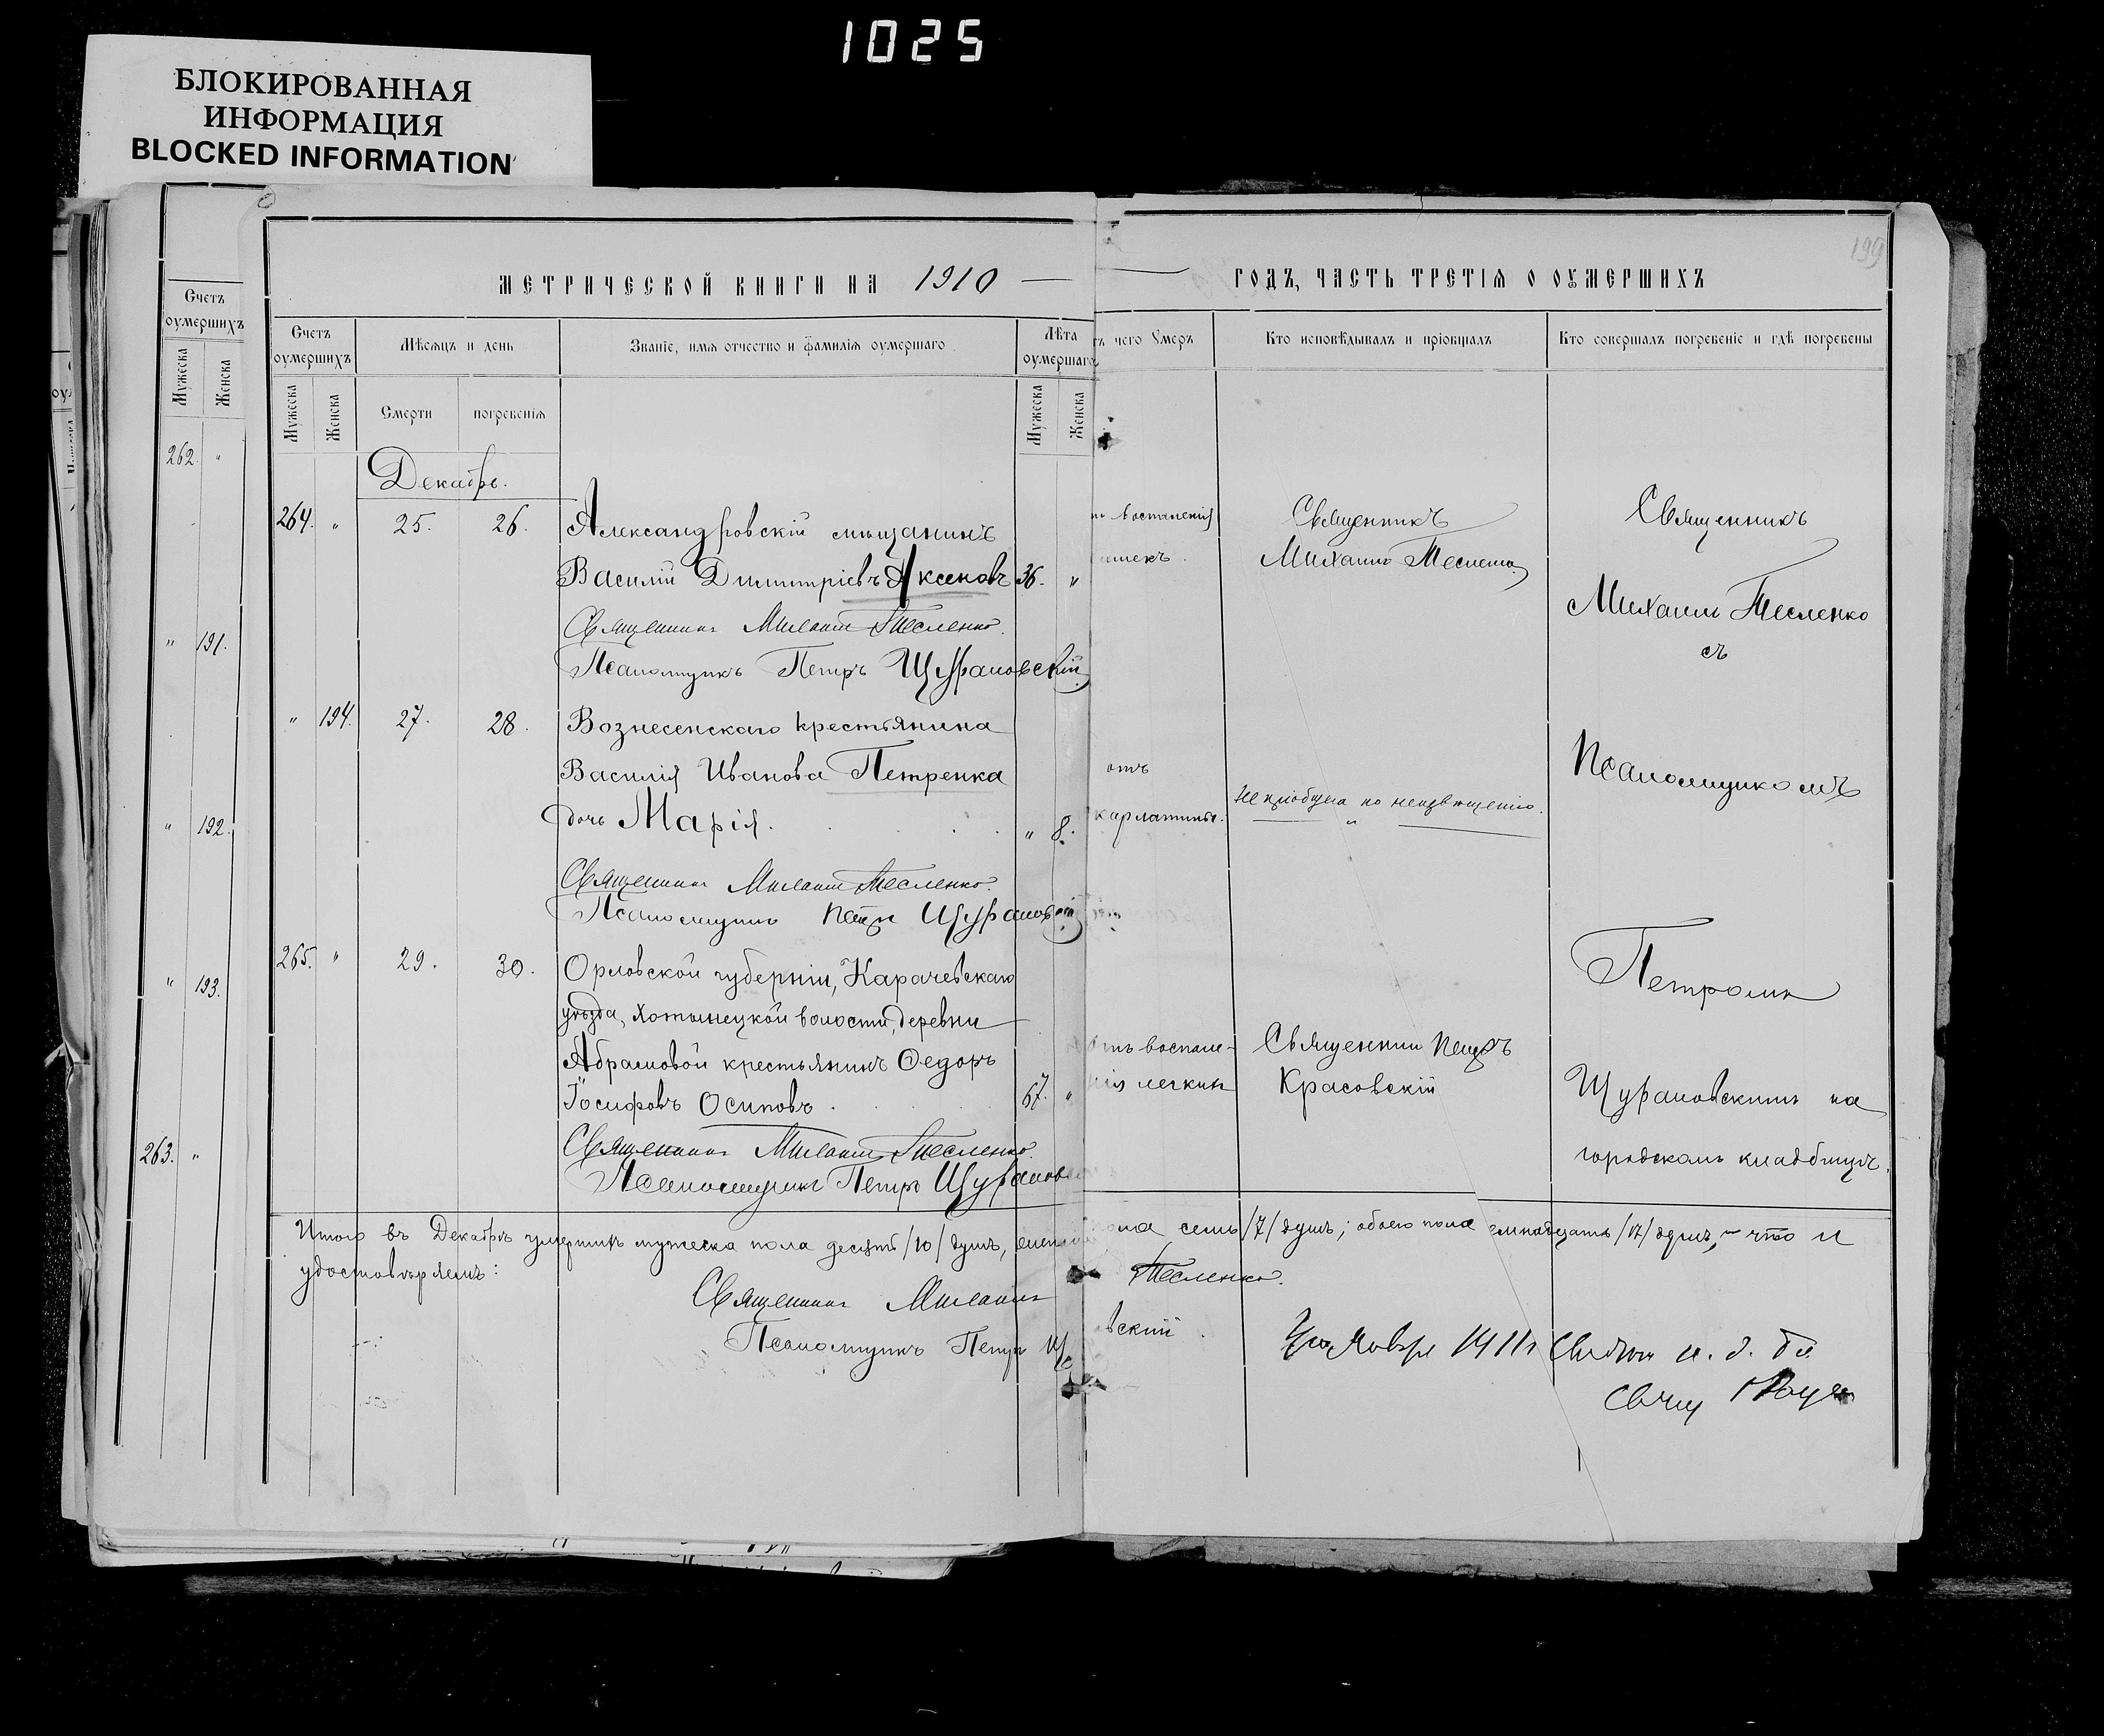 1025
БЛОКИРОВАННАЯ
ИНФОРМАЦИЯ
BLOCKED INFORMATION
199
МЕТРИЧЕСКОЙ КНИГИ НА 1910 ГОДЪ, ЧАСТЬ ТРЕТІЯ О ОУМЕРШИХЪ
Счетъ оумершихъ
Мужеска Женска
262. "
" 191.
" 192.
" 193.
263. "
Счетъ оумершихъ Мѣсяцъ и день Званіе, имя отчество и фамилія оумершаго Лѣта оумершаго
чего Умеръ Кто исповѣдывалъ и пріобщалъ Кто совершалъ погребеніе и гдѣ погребены
Мужеска Женска Смерти погребенія Мужеска Женска
Декабрь.
264. " 25. 26. Александровскій мѣщанинъ
Василій Димитріевъ Аксеновъ 36. "
Священникъ Михаилъ Тесленко.
Псаломщикъ Петръ Щурановскій
" 194. 27. 28. Вознесенскаго крестьянина
Василія Иванова Петренка
дочь Марія. " 8.
Священникъ Михаилъ Тесленко.
Псаломщикъ Петръ
265. " 29. 30. Орловской губерніи, Карачевскаго
уѣзда, Хотынецкой волости, деревни
Абрамовой крестьянинъ Ѳедоръ
Іосифовъ Осиповъ. 67. "
Священникъ Михаилъ Тесленко.
Псаломщикъ Петръ
воспаленія
Священникъ
Михаилъ Тесленко
отъ
карлатины.
Не пріобщена по неизвѣщенію.
воспале-
нія легкихъ
Священникъ Петръ
Красовскій
Священникъ
Михаилъ Тесленко
съ
Псаломщикомъ
Петромъ
Щурановскимъ на
городскомъ кладбищѣ.
Итого въ Декабрѣ умершихъ мужеска пола десять /10/ душъ, пола семь /7/ душъ; обоего пола семнадцать /17/ душъ, что и
удостовѣряемъ:
Священникъ Михаилъ Тесленко.
Псаломщикъ Петръ
вскій.
1911